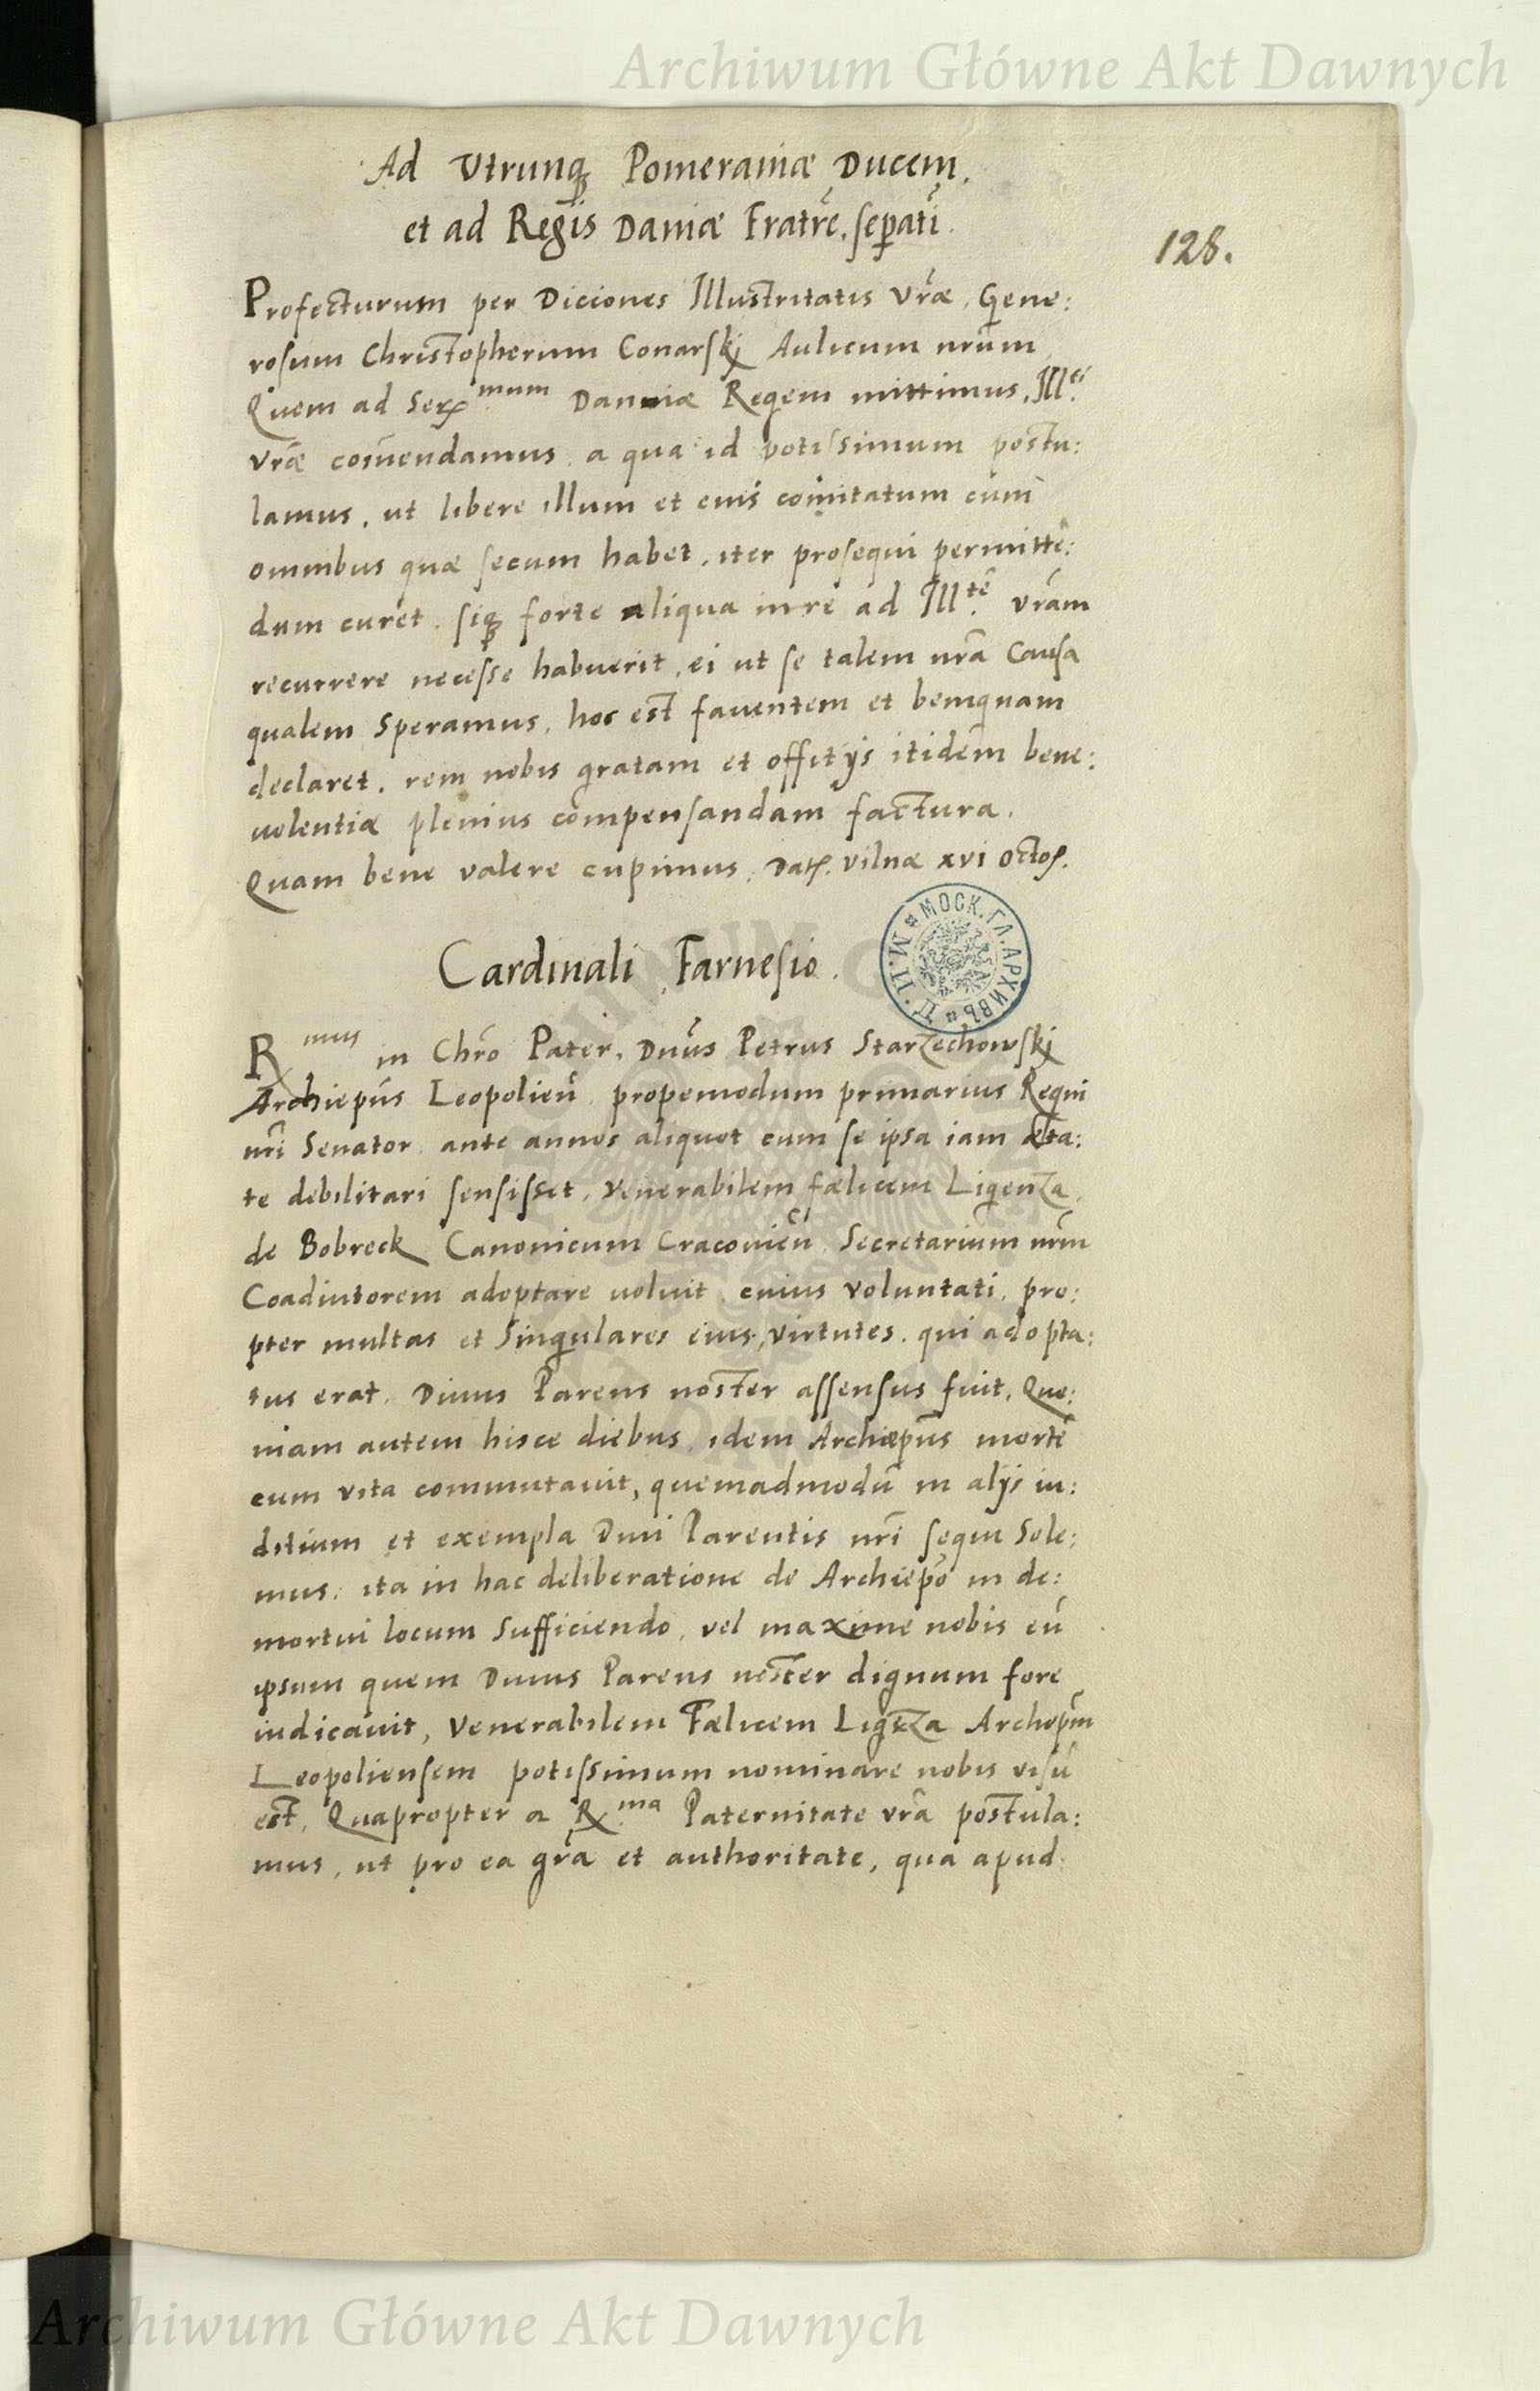 Archiwum Główne Akt Dawnych
Ad Vtrunq; Pomeraniæ Ducem.
et ad Regis Daniæ Fratrē. sepatī.
128.
Profecturum per Diciones Illustritatis Vr̃æ. Gene:
rosum Christopherum Conarskj Aulicum nr̃um
Quem ad Ser mum Daniæ Regem mittimus. Ill. ti
vr̃æ com̃endamus. a qua id potissimum postu:
lamus, ut libere illum et eius comitatum cum
omnibus quæ secum habet, iter prosequi permittē:
dum curet. siq; forte aliqua in re ad Ill. tē vr̃am
recurrere necesse habuerit, ei ut se talem nr̃a Causa
qualem Speramus, hoc est fauentem et benignam
declaret. rem nobis gratam et offitijs itidem bene:
uolentiæ plenius compensandam factura.
Quam bene valere cupimus. Dat. Vilnæ xvi Octo.
Cardinali Farnesio.
МОСК. ГЛ. АРХИВЪ М. И. Д.
R mus in Chr̃o Pater, Dn̄us Petrus Starzechowskj
Archiepūs Leopolien̄. propemodum primarius Regni
nr̃i Senator. ante annos aliquot cum se ipsa iam æta:
te debilitari sensisset, Venerabilem fælicem Ligenza,
de Bobreck Canonicum Cracovien̄. Secretarium nr̃m
Coadiutorem adoptare uoluit, cuius voluntati, pro:
pter multas et Singulares eius, virtutes, qui adopta:
tus erat. Diuus Parens noster assensus fuit, Quo:
niam autem hisce diebus, idem Archiepūs mortē
cum vita commutauit, quemadmodū in alijs iu:
ditium et exempla Diui Parentis nr̃i sequi Sole:
mus, ita in hac deliberatione de Archiepō in de:
mortui locum Sufficiendo, vel maxime nobis eū
ipsum quem Diuus Parens noster dignum fore
iudicauit, Venerabilem Fælicem Ligēza Archepm̄
Leopoliensem potissimum nominare nobis visū
est, Quapropter a R. ma Paternitate vr̃a postula:
mus, ut pro ea gr̃a et authoritate, qua apud
Archiwum Główne Akt Dawnych